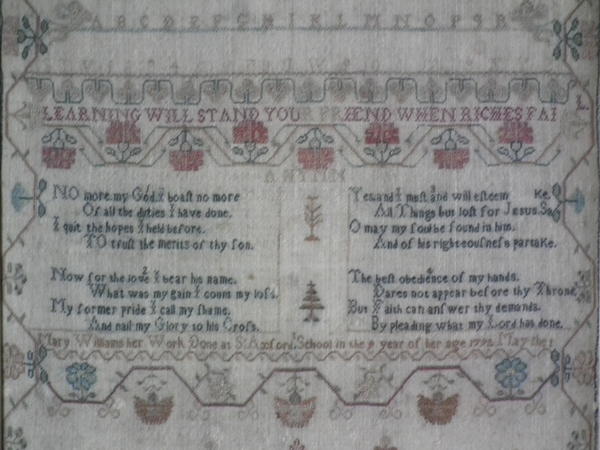 A B C D E F G H I K L M N O P S R
LEARNING WILL STAND YOUR FRIEND WHEN RICHES FAIL
NO more my God I boast no more
Of all the duties I have done,
I quit the hopes I held before.
TO trust the merits of thy son.
Now for the love I bear his name.
What was my gain I count my loss.
My former pride I call my shame.
And nail my Glory to his Cross.
Yes and I must and will esteem
All Things but loss for Jesus. Sake
O may my soul be found in him.
And of his righteousness partake.
The best obedience of my hands.
Dares not appear before thy Throne
But Faith can answer thy demands.
By pleading what my Lord has done.
Mary Williams her Work Done at School in the 9 year of her age May the 1